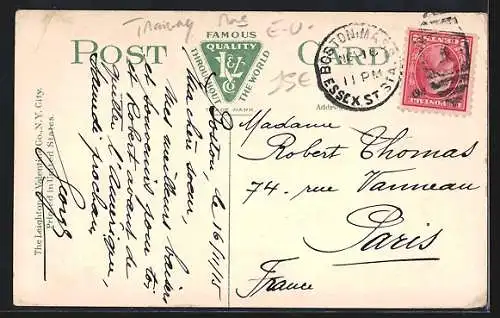 Tramway
E-U-
15E
POST CARD
FAMOUS
QUALITY
THROUGHOUT THE WORLD
TRADE MARK
BOSTON, MASS.
11 PM
ESSEX ST. STA.
Boston, le 16/11/15
Ma chère soeur,
Mes meilleurs baisers
et souvenirs pour toi
et Robert avant de
quitter l'Amérique,
Samedi prochain,
Madame
Robert Thomas
74. rue Vanneau
Paris
France
The Leighton & Valentine Co., N.Y. City.
Printed in United States.